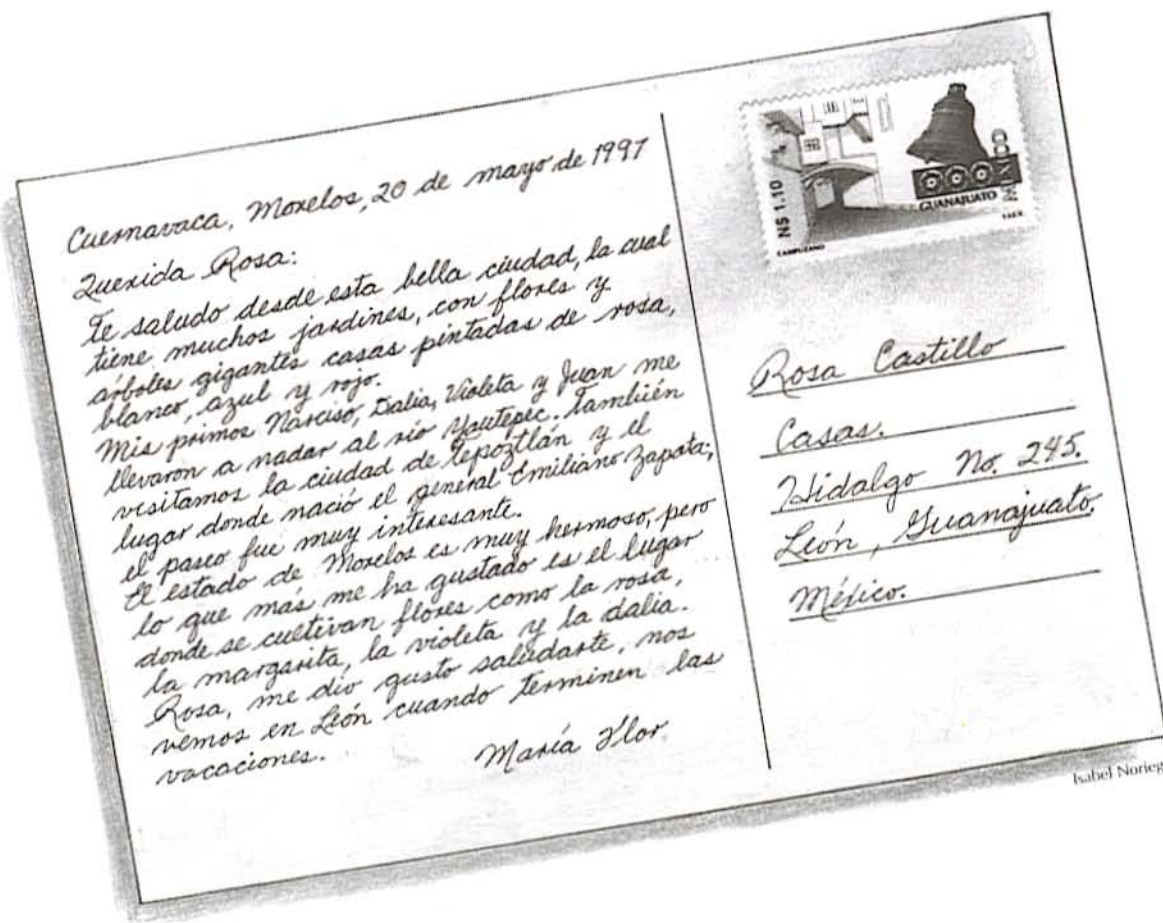 Cuernavaca, Morelos, 20 de mayo de 1997
Querida Rosa:
Te saludo desde esta bella ciudad, la cual
tiene muchos jardines, con flores y
árboles gigantes casas pintadas de rosa,
blanco, azul y rojo.
Mis primos Narciso, Dalia, Violeta y Juan me
llevaron a nadar al río Yautepec. También
visitamos la ciudad de Tepoztlán y el
lugar donde nació el general Emiliano Zapata;
el paseo fue muy interesante.
El estado de Morelos es muy hermoso, pero
lo que más me ha gustado es el lugar
donde se cultivan flores como la rosa,
la margarita, la violeta y la dalia.
Rosa, me dio gusto saludarte, nos
vemos en León cuando terminen las
vacaciones.
María Flor
N$ 1.10
CAMPUZANO
GUANAJUATO
MEXICO
Rosa Castillo
Casas.
Hidalgo No. 245.
León, Guanajuato.
México.